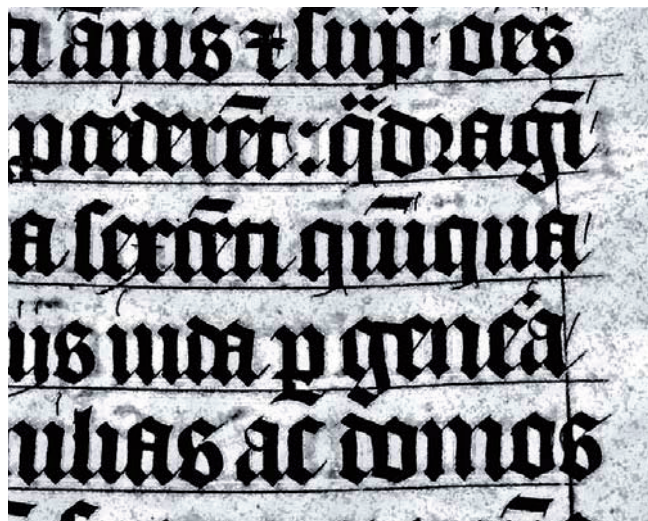 ti ānis ⁊ sup̈· oēs
ꝓcederēt : q̈dragīti
a sexcēti quīqua
iis iuda ꝑ genera
milias ac domos